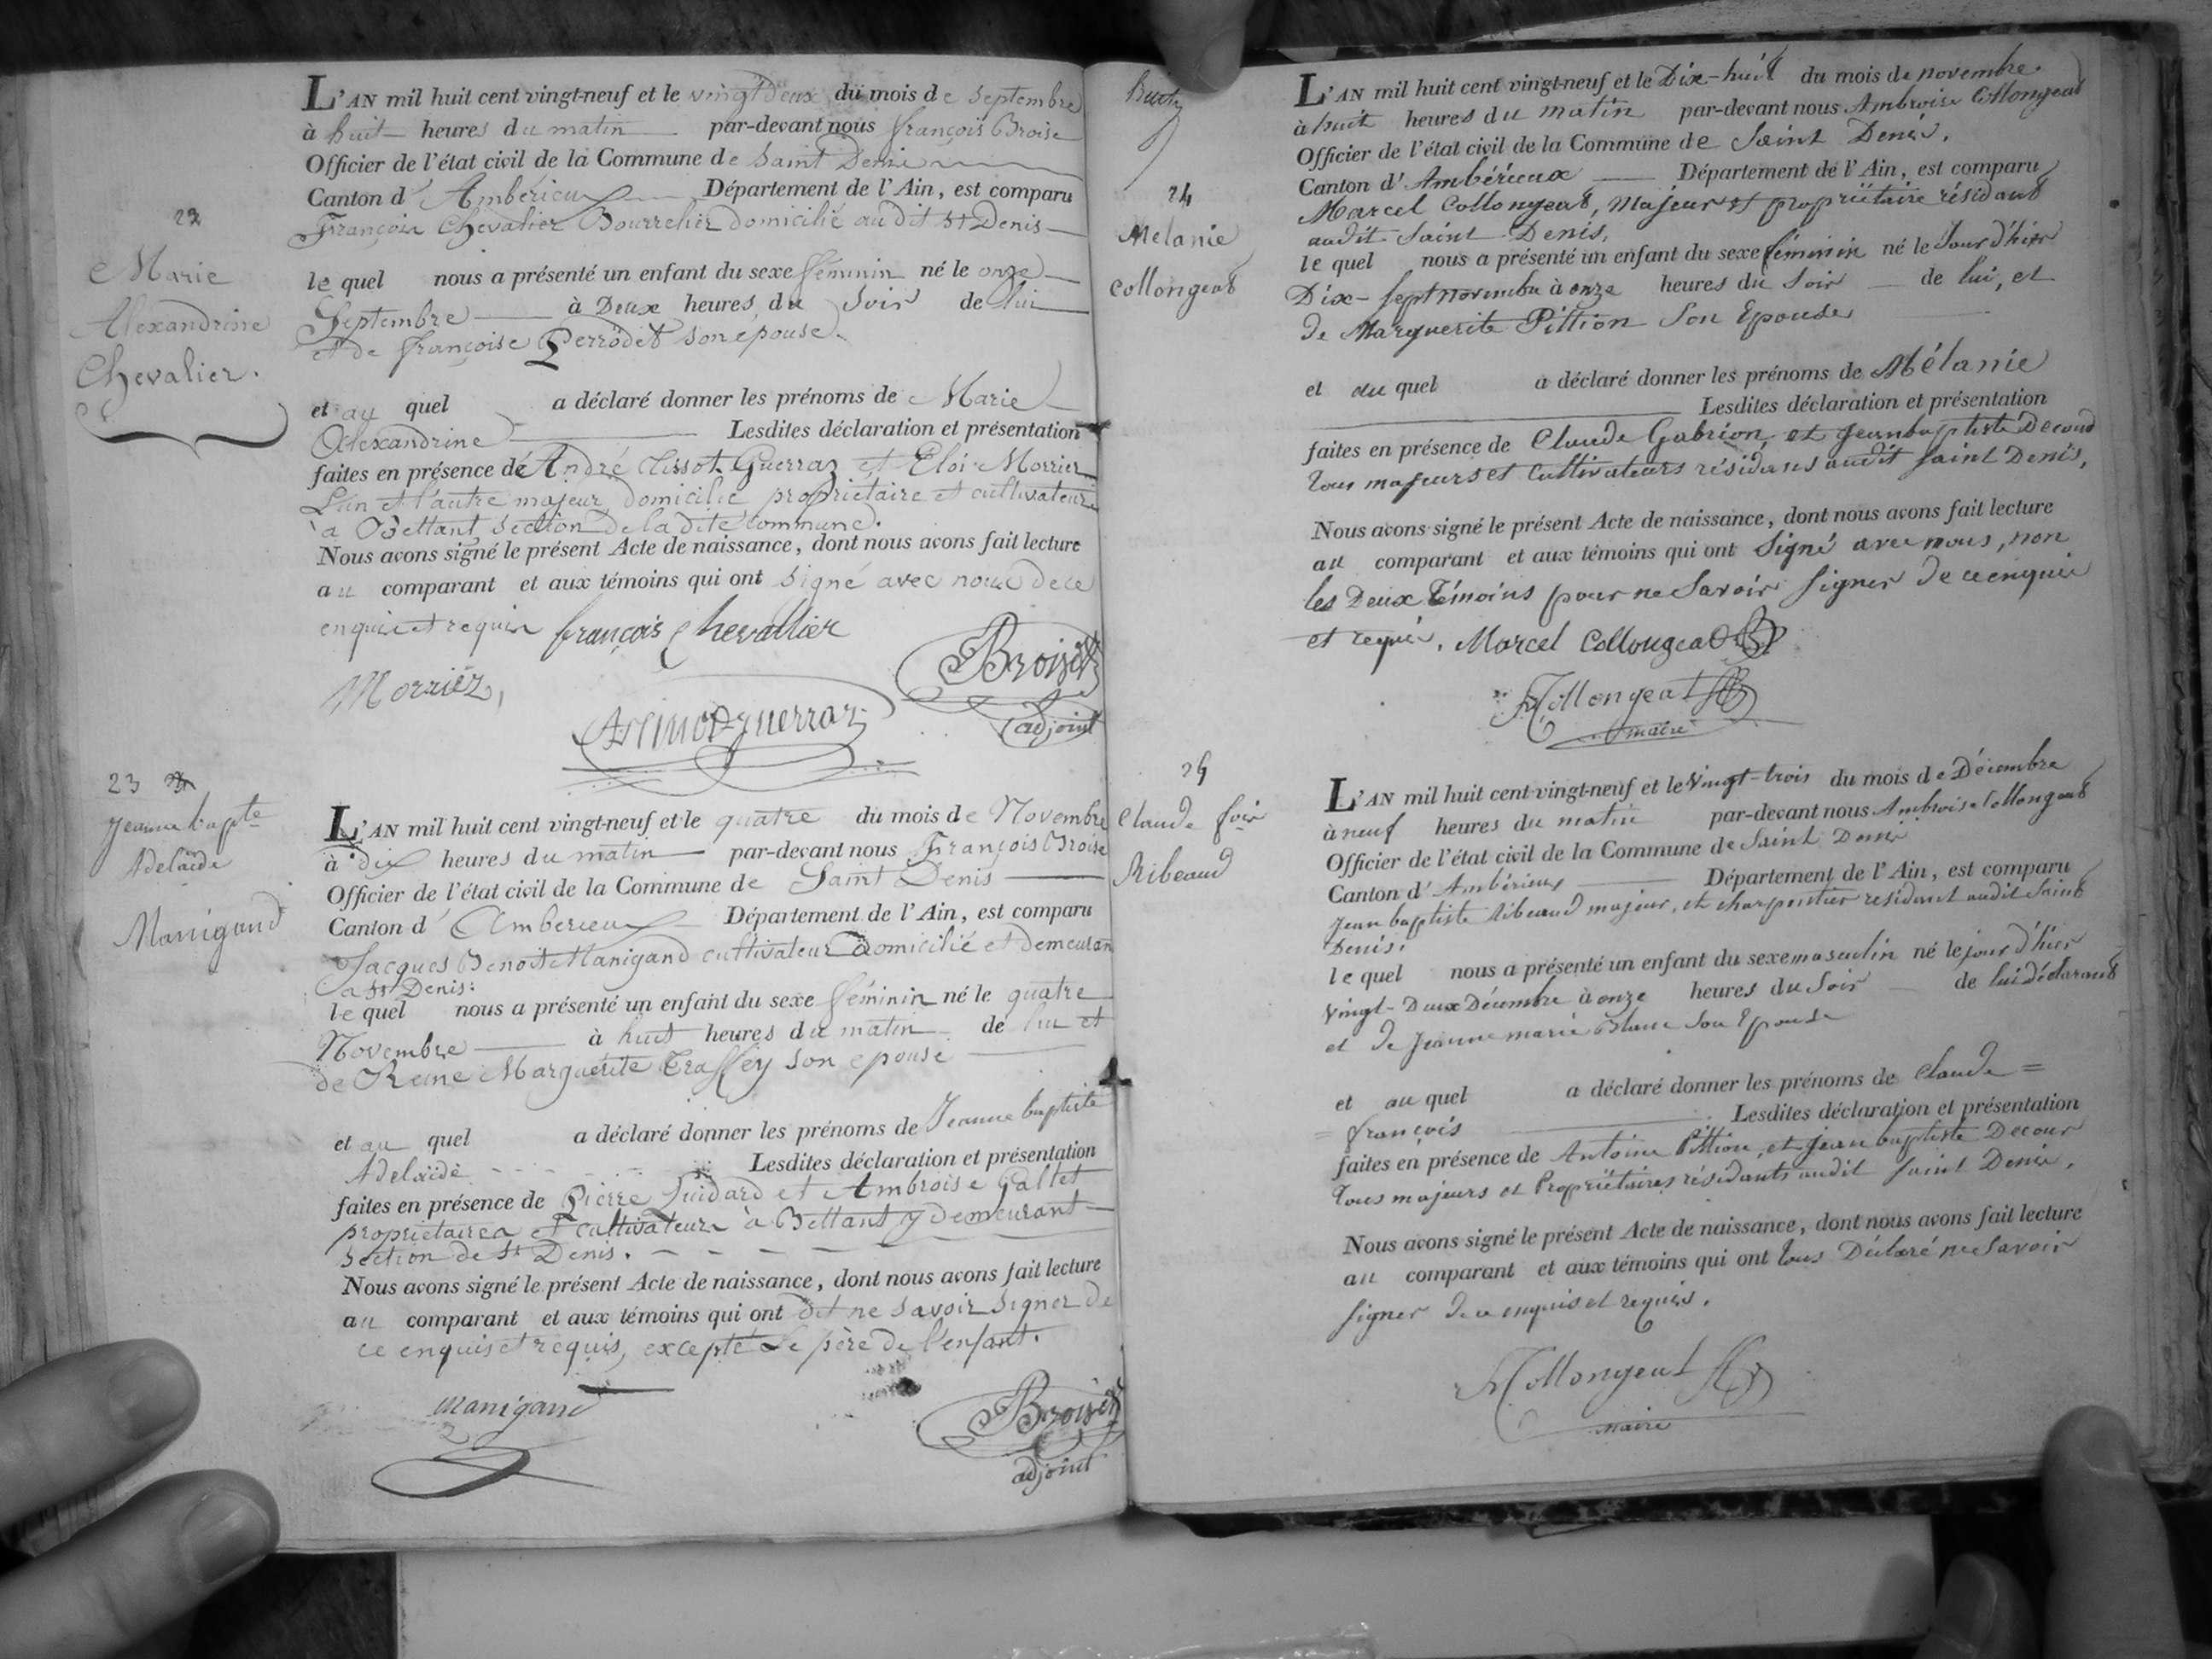 22
Marie
Alexandrine
Chevalier.
L'AN mil huit cent vingt-neuf et le vingt deux du mois de septembre
à huit heures du matin par-devant nous françois Broise
Officier de l'état civil de la Commune de Saint Denis
Canton d'Ambérieux Département de l'Ain, est comparu
François Chevalier Bourrelier domicilié audit St Denis
le quel nous a présenté un enfant du sexe féminin né le onze
Septembre à Deux heures du Soir de lui
et de françoise Perrodet son épouse.
et au quel a déclaré donner les prénoms de Marie
Alexandrine Lesdites déclaration et présentation
faites en présence de André Tissot Guerraz et Eloi Morrier
L'un et l'autre majeur domicilié propriétaire et cultivateurs
à Bettant section de la dite commune.
Nous avons signé le présent Acte de naissance, dont nous avons fait lecture
au comparant et aux témoins qui ont signé avec nous de ce
enquis et requis françois Chevallier
Morriez,
Broise
adjoint
23
Jeanne bapte
Adelaïde
Manigand
L'AN mil huit cent vingt-neuf et le quatre du mois de Novembre
à dix heures du matin par-devant nous François Broise
Officier de l'état civil de la Commune de Saint Denis
Canton d'Amberieux Département de l'Ain, est comparu
Jacques Benoit Manigand cultivateur domicilié et demeurant
a St Denis:
le quel nous a présenté un enfant du sexe féminin né le quatre
Novembre à huit heures du matin de lui et
de Reine Marguerite Traffey son epouse
et au quel a déclaré donner les prénoms de Jeanne baptiste
Adelaïde Lesdites déclaration et présentation
faites en présence de Pierre Guidard et Ambroise Galtet
propriétaires et cultivateurs à Bettant y demeurant
section de St Denis.
Nous avons signé le présent Acte de naissance, dont nous avons fait lecture
au comparant et aux témoins qui ont dit ne savoir signer de
ce enquis et requis, excepté le père de l'enfant.
manigand
Broise
adjoint
24
Mélanie
Collongeat
L'AN mil huit cent vingt-neuf et le Dix-huit du mois de novembre
à huit heures du matin par-devant nous Ambroise Collongeat
Officier de l'état civil de la Commune de Saint Denis,
Canton d'Ambérieux Département de l'Ain, est comparu
Marcel Collongeat, Majeur et propriétaire résidant
audit Saint Denis,
le quel nous a présenté un enfant du sexe féminin né le Jour d'hier
Dix-sept novembre à onze heures du Soir de lui, et
de Marguerite Pittion Son Epouse
et au quel a déclaré donner les prénoms de Mélanie
Lesdites déclaration et présentation
faites en présence de Claude Gabrion, et Jeanbaptiste Decourd
tous majeurs et cultivateurs résidans audit Saint Denis,
Nous avons signé le présent Acte de naissance, dont nous avons fait lecture
au comparant et aux témoins qui ont Signé avec nous, non
les Deux témoins pour ne Savoir Signer de ce enquis
et requis. Marcel Collongeat
A Collongeat
maire
25
Claude fois
Ribeaud
L'AN mil huit cent vingt-neuf et le Vingt-trois du mois de Décembre
à neuf heures du matin par-devant nous Ambroise Collongeat
Officier de l'état civil de la Commune de Saint Denis
Canton d'Ambérieux Département de l'Ain, est comparu
Jean baptiste Ribeaud majeur, et charpentier résidant audit Saint
Denis.
le quel nous a présenté un enfant du sexe masculin né le jour d'hier
Vingt-Deux Décembre à onze heures du Soir de lui déclarant
et de Jeanne marie Blanc Son Epouse
et au quel a déclaré donner les prénoms de Claude =
= françois Lesdites déclaration et présentation
faites en présence de Antoine Pittion, et Jean baptiste Decour
tous majeurs et Propriétaires résidants audit Saint Denis,
Nous avons signé le présent Acte de naissance, dont nous avons fait lecture
au comparant et aux témoins qui ont tous Déclaré ne Savoir
Signer de ce enquis et requis.
A Collongeat
maire